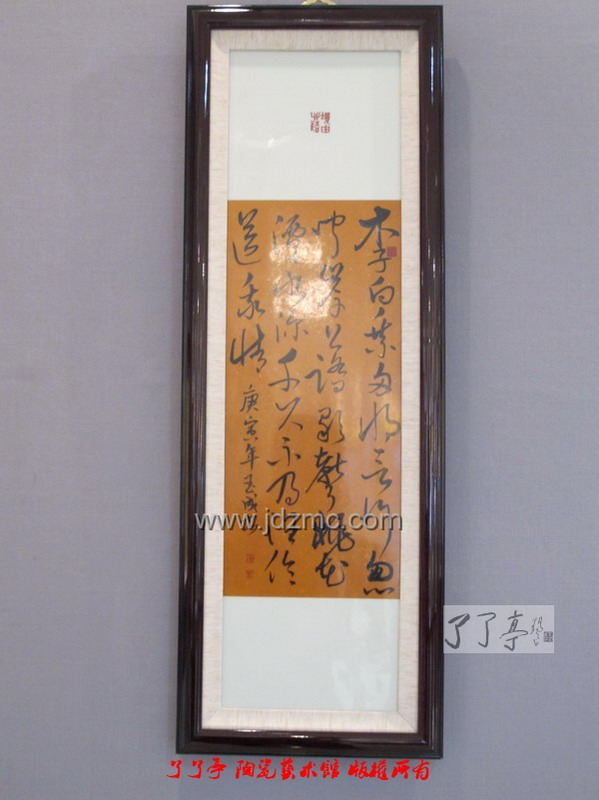 李白乘舟将欲行忽
闻岸上踏歌聲桃花
潭水深千尺不及汪伦
送我情
庚寅年玉成
www.jdzmc.com
了了亭
了了亭 陶瓷藝术館 版權所有